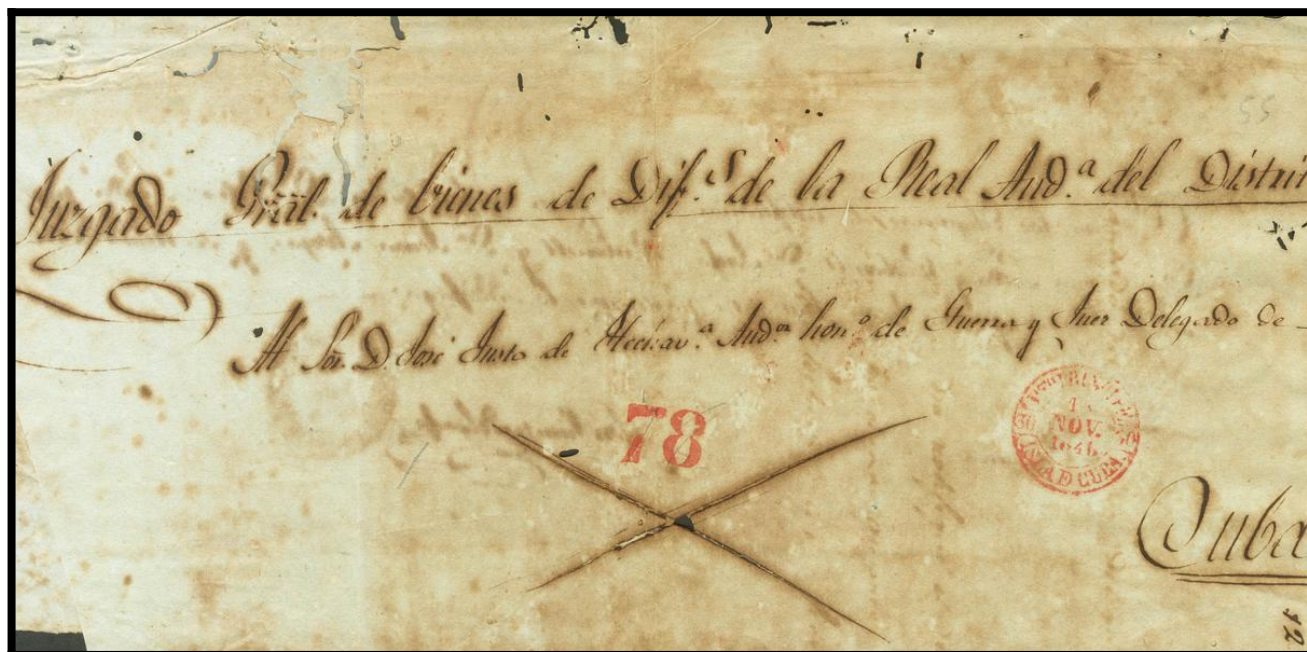 55
Juzgado Gral. de bienes de Dif.s de la Real Aud.a del Distri
Al Sor. D. José Justo de Hechav.a Aud.or hon.o de Guerra y Juez Delegado de
78
NOV.
1846
ISLA D CUBA
Cuba
12